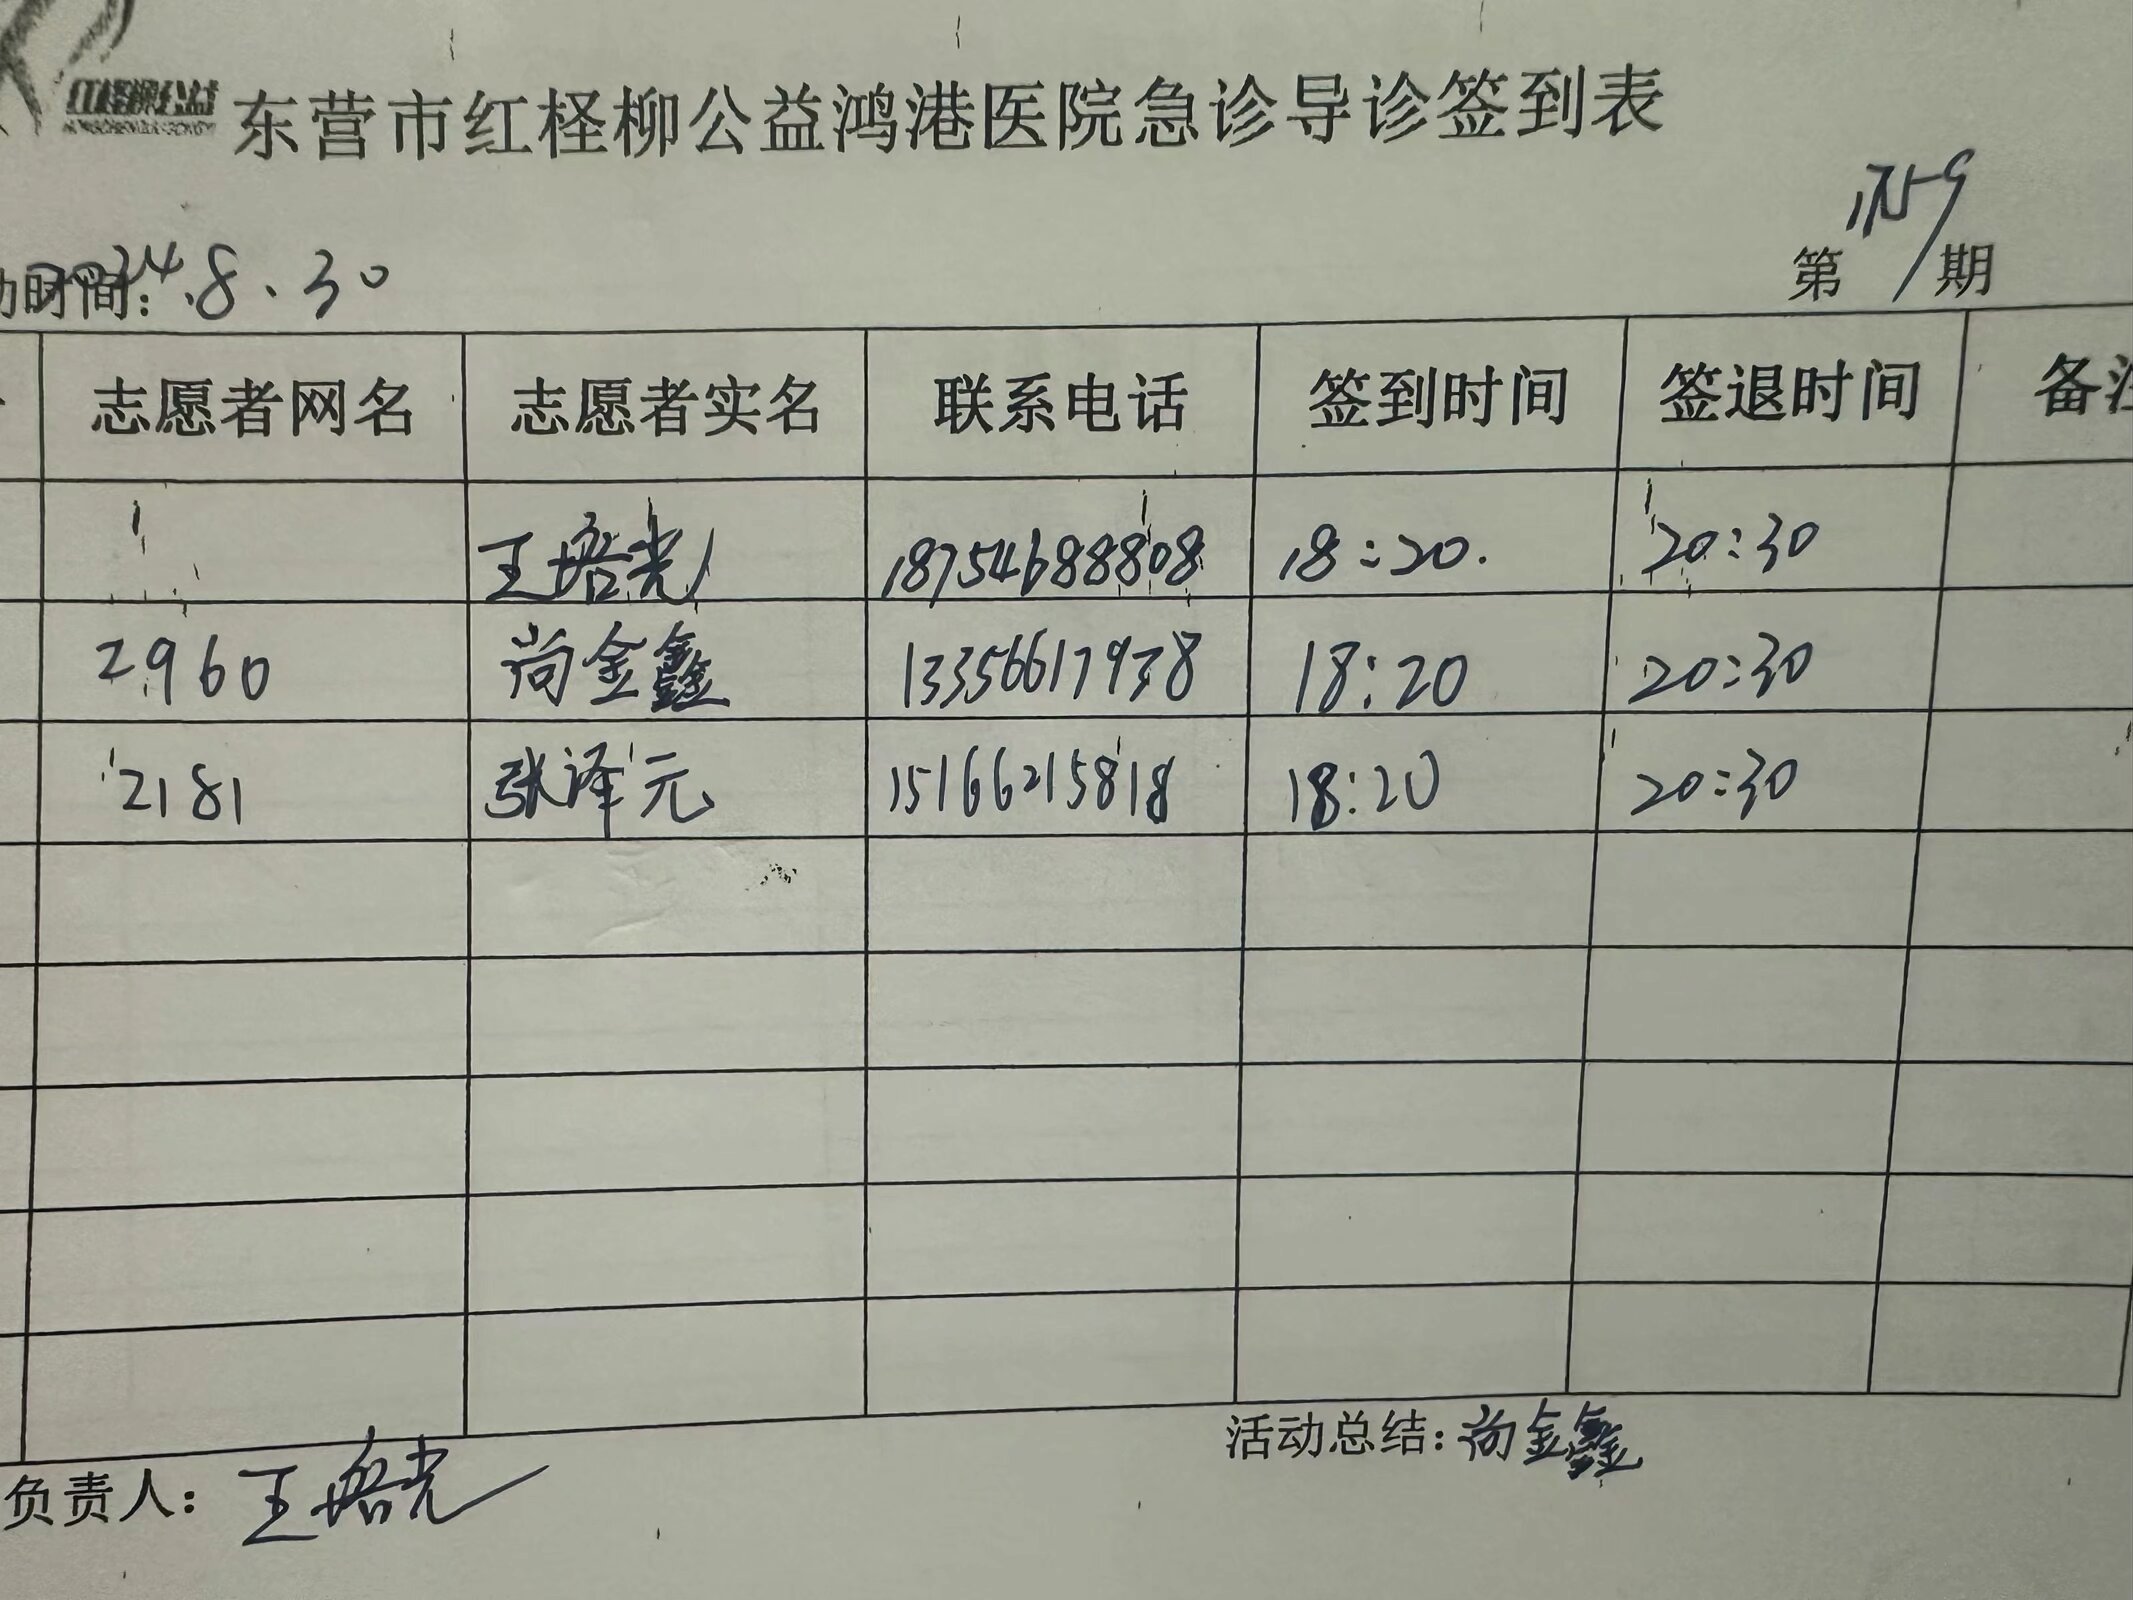 红柽柳公益
东营市红柽柳公益鸿港医院急诊导诊签到表
第 期
动时间: 2024.8.30
志愿者网名 志愿者实名 联系电话 签到时间 签退时间 备注
王培光 18754688808 18:20. 20:30
2960 尚金鑫 13356617978 18:20 20:30
2181 张泽元 15166215818 18:20 20:30
活动总结: 尚金鑫
负责人: 王培光